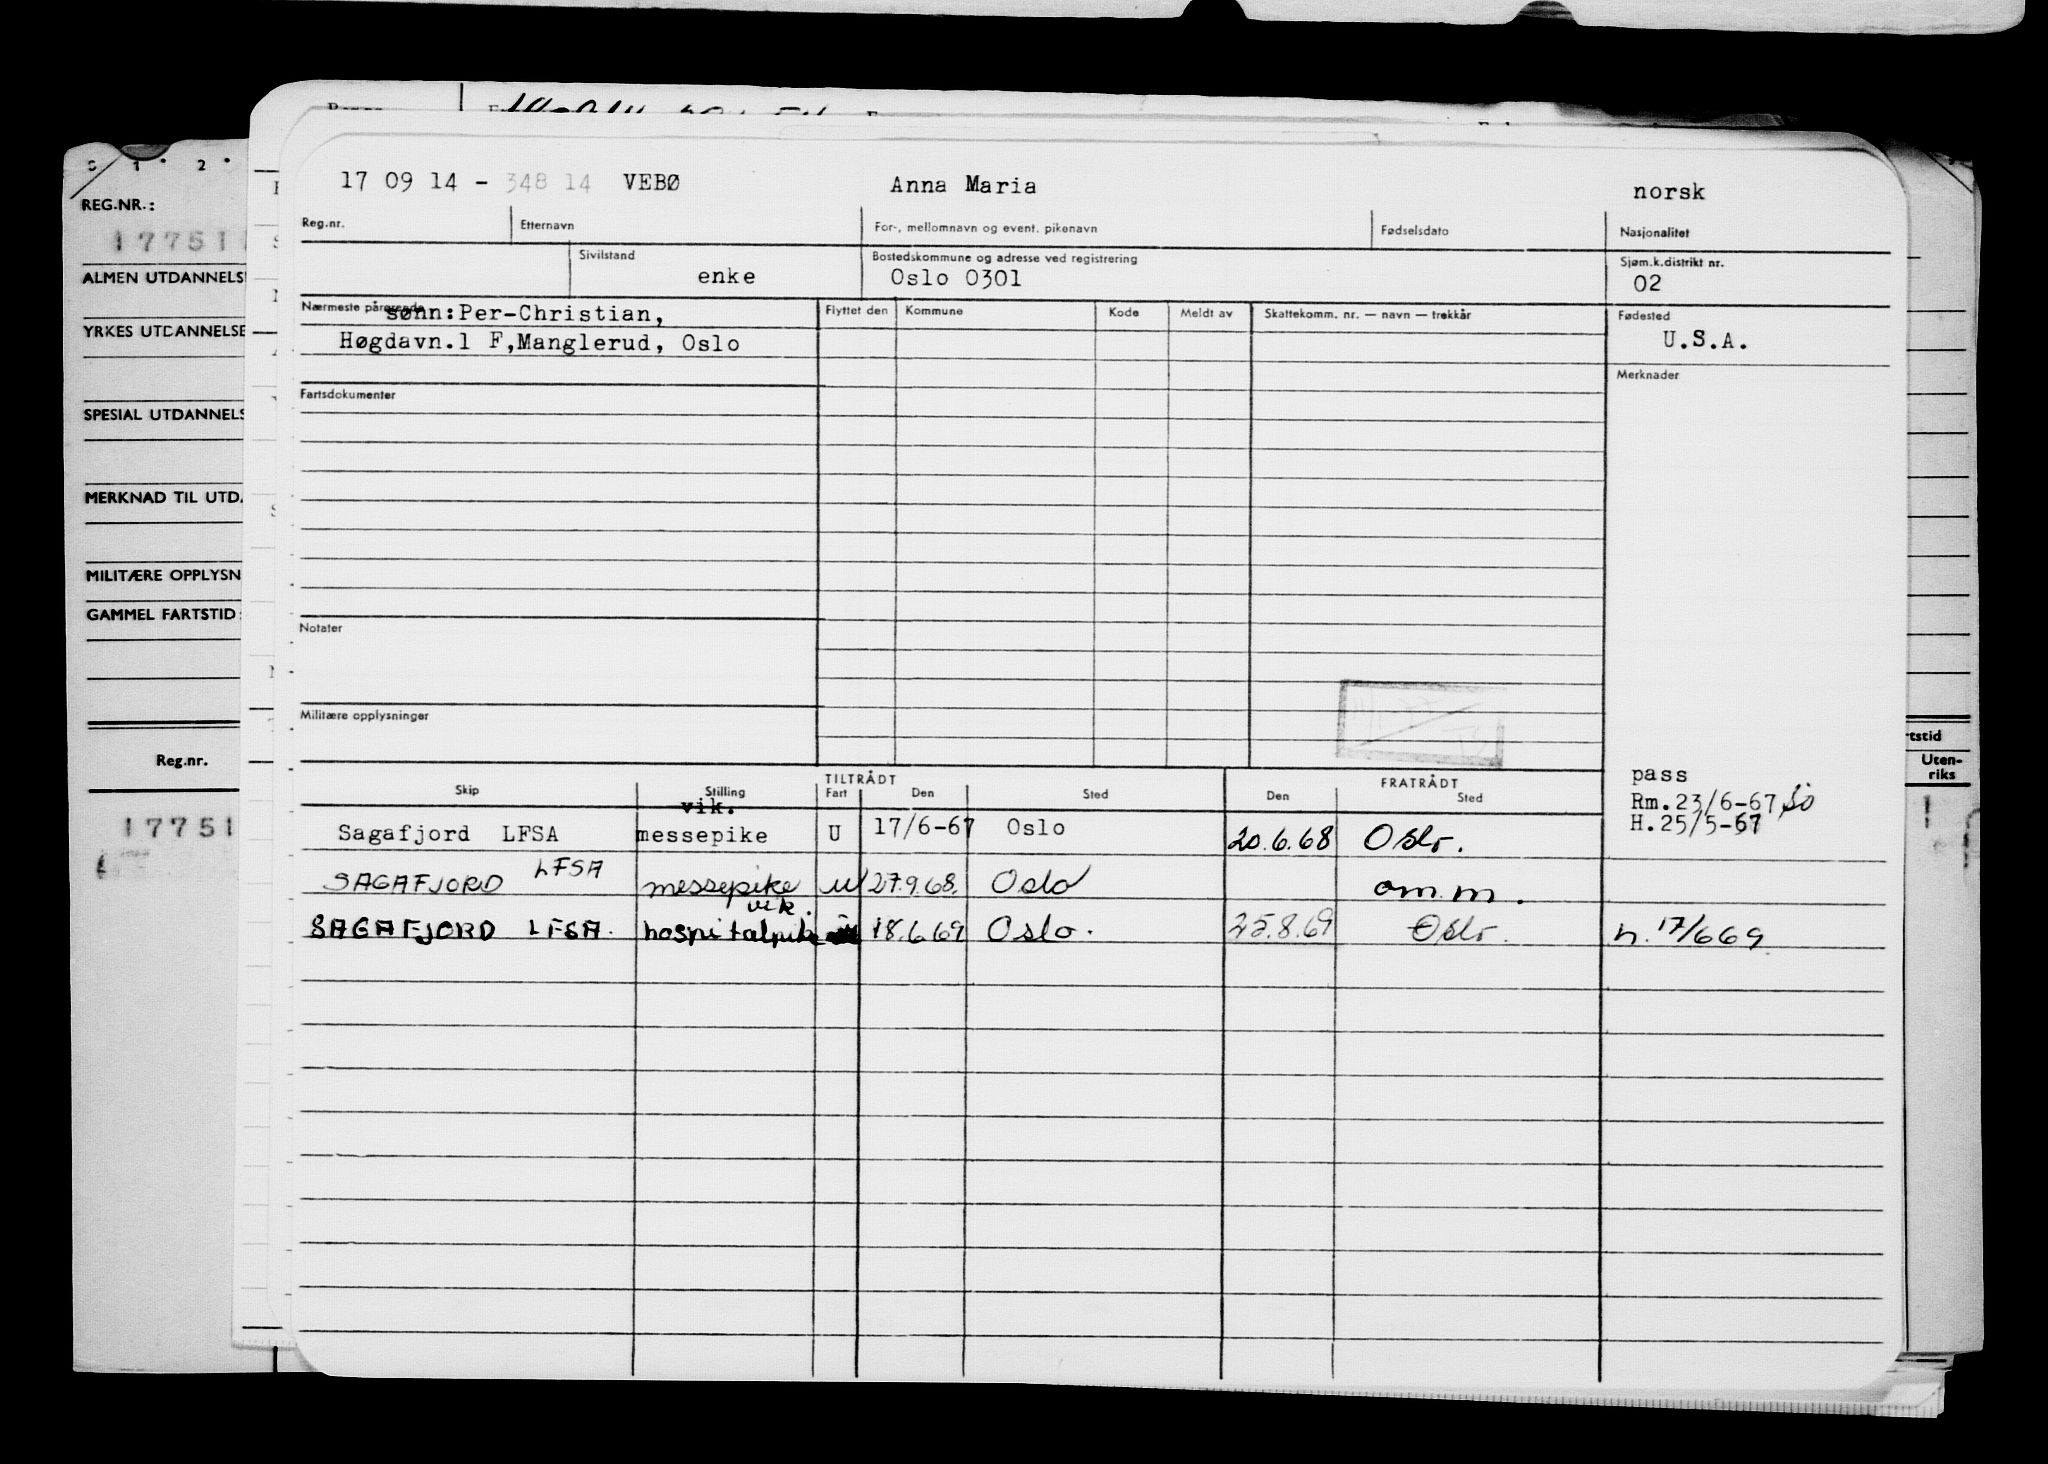 S 1 • 2 •
REG.NR.:
17751
ALMEN UTDANNELS
YRKES UTDANNELSE
SPESIAL UTDANNELS
MERKNAD TIL UTD
MILITÆRE OPPLYSN
GAMMEL FARTSTID:
Reg.nr.
17751
17 09 14 - 348 14 VEBØ Anna Maria norsk
Reg.nr. Etternavn For-, mellomnavn og event. pikenavn Fødselsdato Nasjonalitet
Sivilstand Bostedskommune og adresse ved registrering Sjøm.k.distrikt nr.
enke Oslo 0301 02
Nærmeste pårørende Flyttet den Kommune Kode Meldt av Skattekomm. nr. — navn — trekkår Fødested
sønn:Per-Christian,
Høgdavn.1 F,Manglerud, Oslo U.S.A.
Merknader
Fartsdokumenter
Notater
Militære opplysninger
TILTRÅDT FRATRÅDT
Skip Stilling Fart Den Sted Den Sted
pass
Rm.23/6-67
H.25/5-67
vik.
Sagafjord LFSA messepike U 17/6-67 Oslo 20.6.68 Oslo.
SAGAFJORD LFSA messepike u 27.9.68. Oslo om.m.
vik.
SAGAFJORD LFSA. hospitalpike 18.6.69 Oslo. 25.8.69 Oslo. h. 17/669
rtstid
Uten-
riks